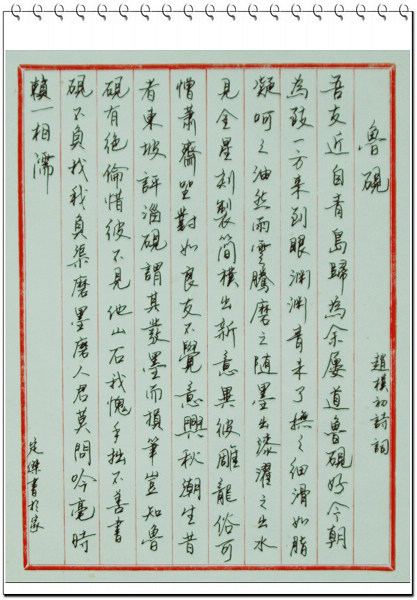 魯硯
趙樸初詩詞
吾友近自青島歸為余屢道魯硯好今朝
為致一方来到眼渊渊青未了撫之細滑如脂
凝呵之油然雨雲騰磨之随墨出漆濯之出水
見金星刻製簡樸出新意異彼雕龍俗可
憎蕭齋坐對如良友不覺意興秋潮生昔
者東坡評淄硯謂其發墨而損筆豈知魯
硯有絶倫惜彼不見他山石我愧手拙不善書
硯不負我我負渠磨墨磨人君莫問吟毫時
賴一相濡
書於家